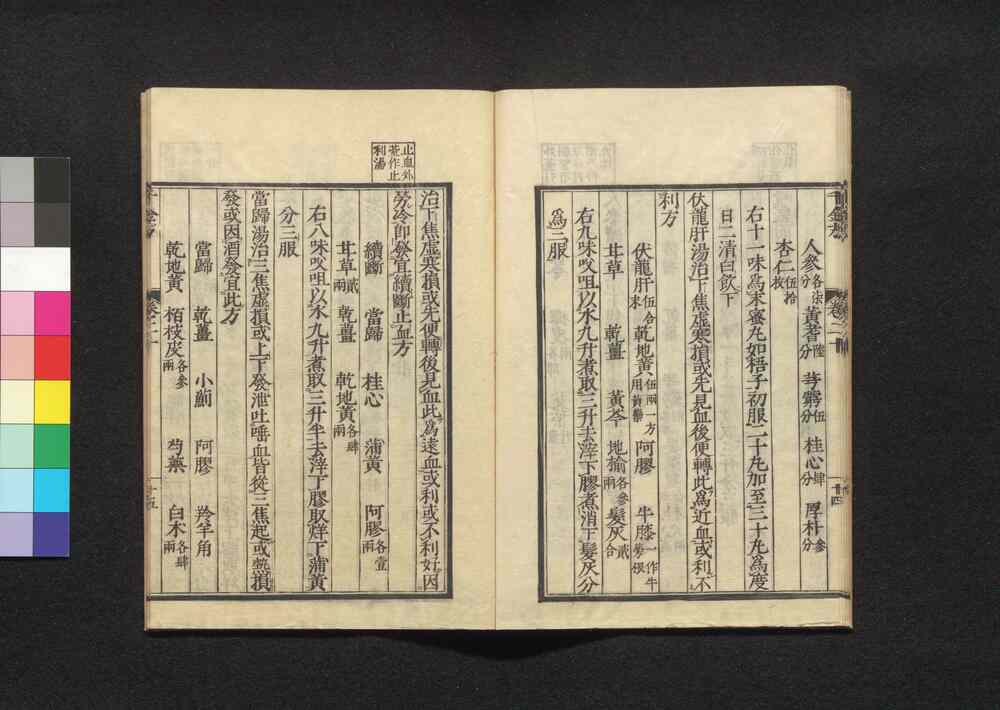 人參各柒分 黃耆陸分 芎藭伍分 桂心肆分 厚朴參分
杏仁伍拾枚
右十一味爲末蜜丸如梧子初服二十丸加至三十丸爲度
日二清白飲下
伏龍肝湯治下焦虛寒損或先見血後便轉此爲近血或利不
利方
伏龍肝伍合末 乾地黃伍兩一方用黃蘗 阿膠 牛膝一作牛蒡根
甘草 乾薑 黃芩 地榆各參兩 髮灰貳合
右九味㕮咀以水九升煮取三升去滓下膠煮消下髮灰分
爲三服
千金方 卷二十 廿四
止血外
薹作止
利湯
治下焦虛寒損或先便轉後見血此爲遠血或利或不利好因
勞冷即發宜續斷止血方
續斷 當歸 桂心 蒲黃 阿膠各壹兩
甘草貳兩 乾薑 乾地黃各肆兩
右八味㕮咀以水九升煮取三升半去滓下膠取烊下蒲黃
分三服
當歸湯治三焦虛損或上下發泄吐唾血皆從三焦起或熱損
發或因酒發宜此方
當歸 乾薑 小薊 阿膠 羚羊角
乾地黃 栢枝皮各參兩 芍藥 白朮各肆兩
千金方 卷二十 廿五